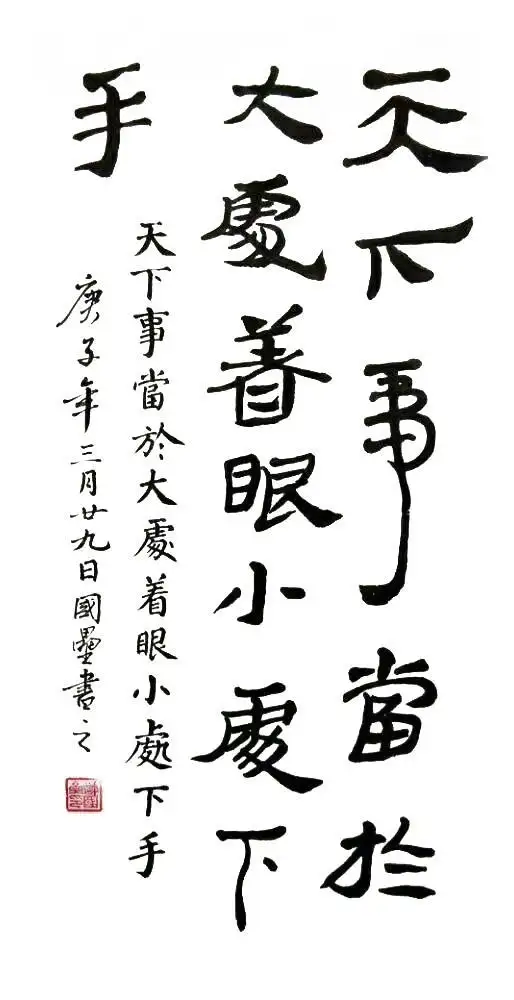 天下事當於
大處着眼小處下
手
天下事當於大處着眼小處下手
庚子年三月廿九日國墨書之